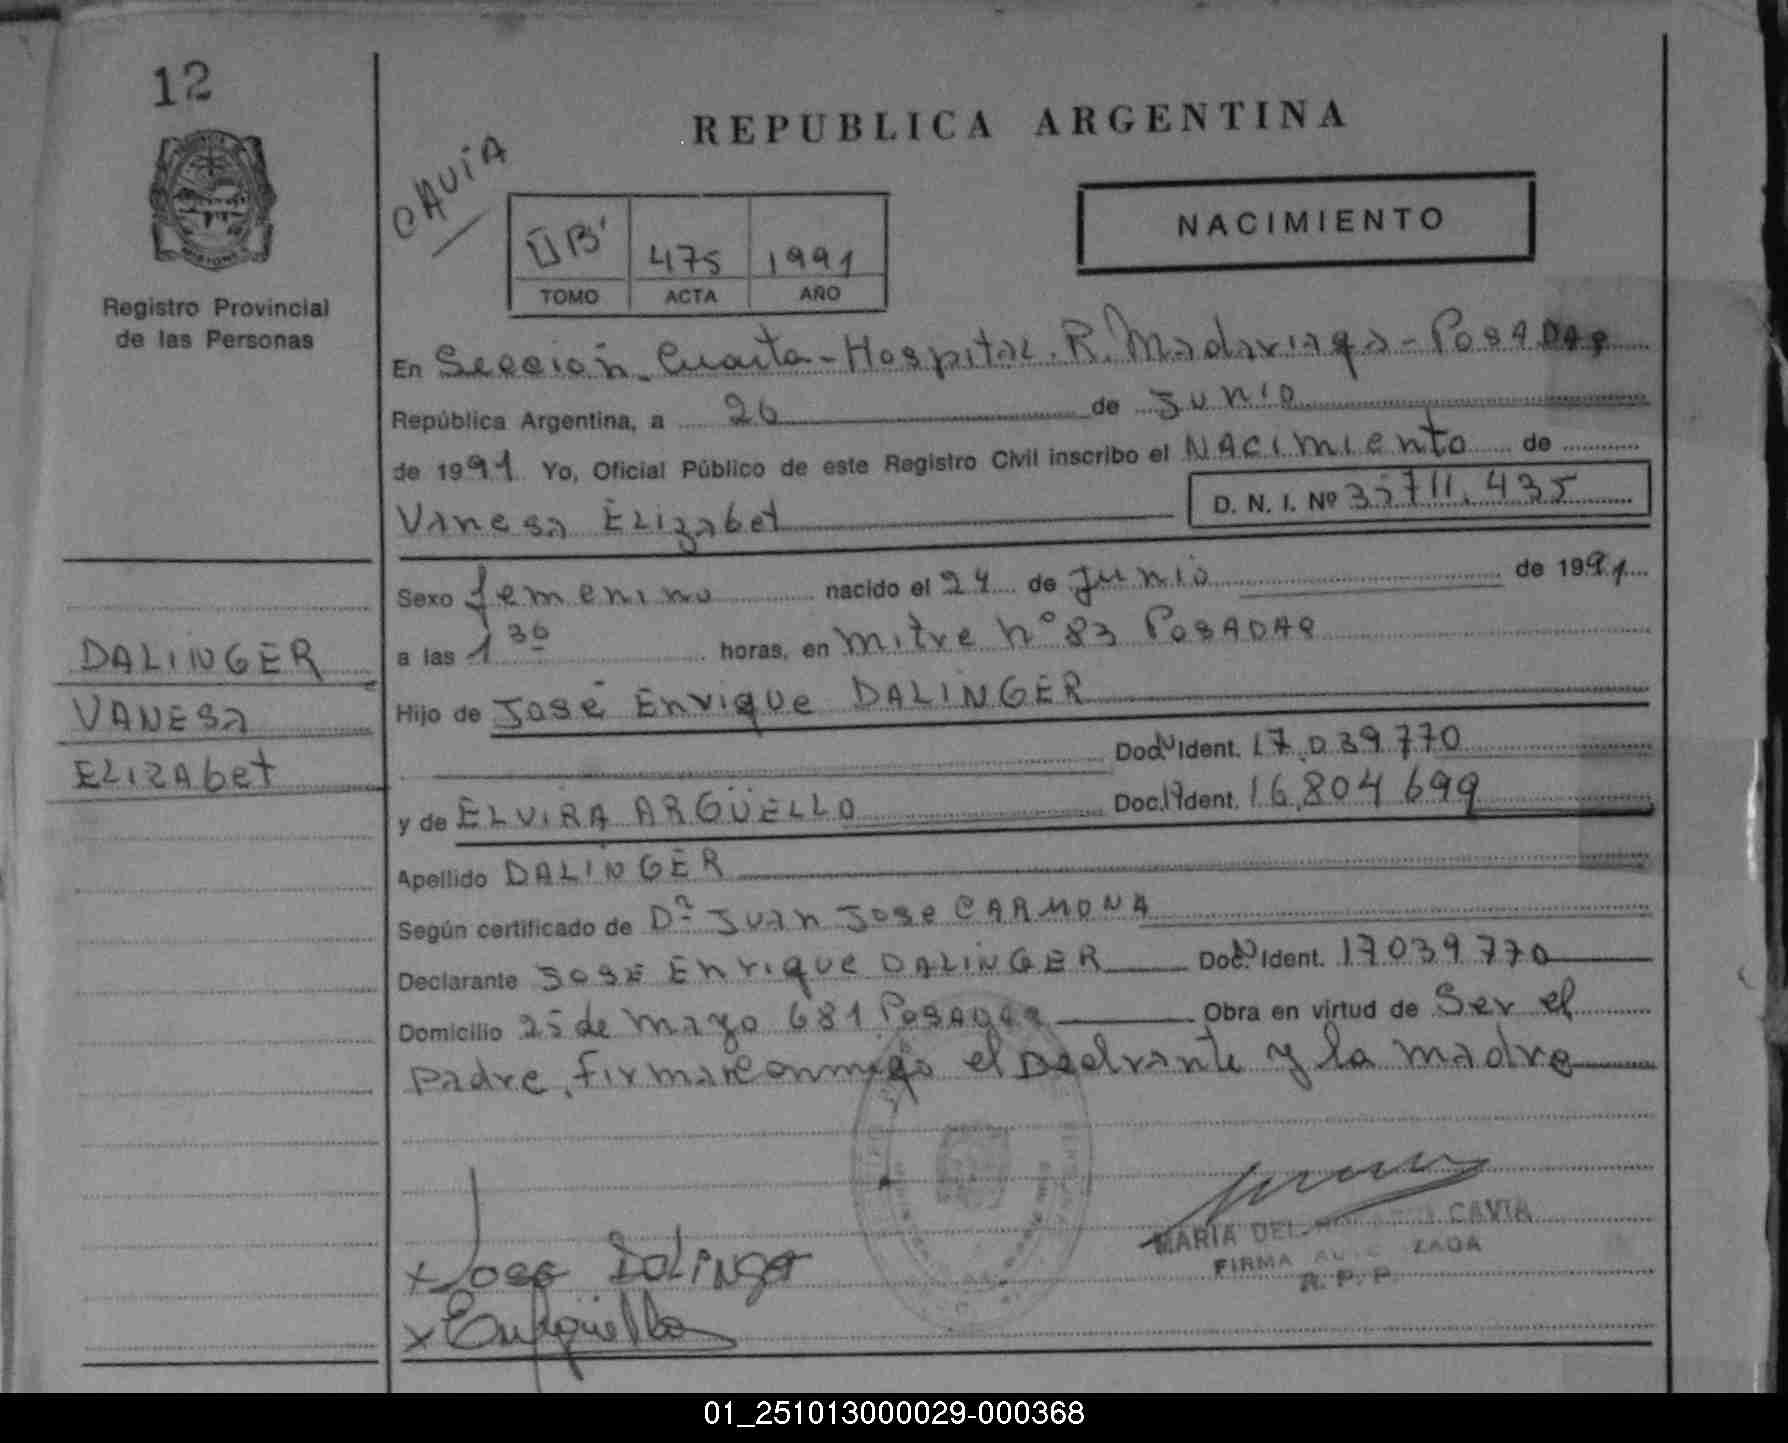 12
REPUBLICA ARGENTINA
CAVIA
NACIMIENTO
475 1991
TOMO ACTA AÑO
Registro Provincial
de las Personas
En Sección Cuarta - Hospital R. Madariaga - POSADAS
República Argentina, a 26 de Junio
de 1991 Yo, Oficial Público de este Registro Civil inscribo el NACimiento de
Vanesa Elizabet D. N. I. Nº 35711.435
Sexo femenino nacido el 24 de Junio de 1991
a las 1 30 horas, en mitre nº 83 POSADAS
DALINGER
VANESA
ELIZAbet
Hijo de José Enrique DALINGER
Doc. Ident. 17.039.770
y de ELVIRA ARGÜELLO Doc. Ident. 16.804.699
Apellido DALINGER
Según certificado de Dr. Juan Jose CARMONA
Declarante JOSE Enrique DALINGER Doc. Ident. 17039770
Domicilio 25 de mayo 681 POSADAS Obra en virtud de Ser el
padre, firman conmigo el declarante y la madre
x Jose Dalinger
x E Argüello
MARIA DEL CAVIA
FIRMA
R.P.P.
01_251013000029-000368